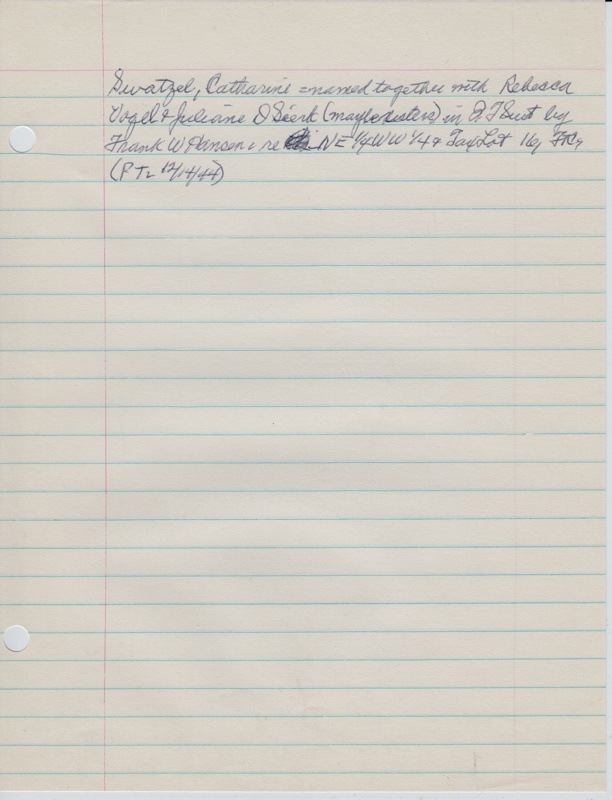 Swatzel, Catharine = named together with Rebecca
Vogel & Juliane D Sierk (maybe sisters) in QT Suit by
Frank W Hansen, re NE 1/4 WW 1/4 & Tax Lot 16,
(PT 12/14/44)